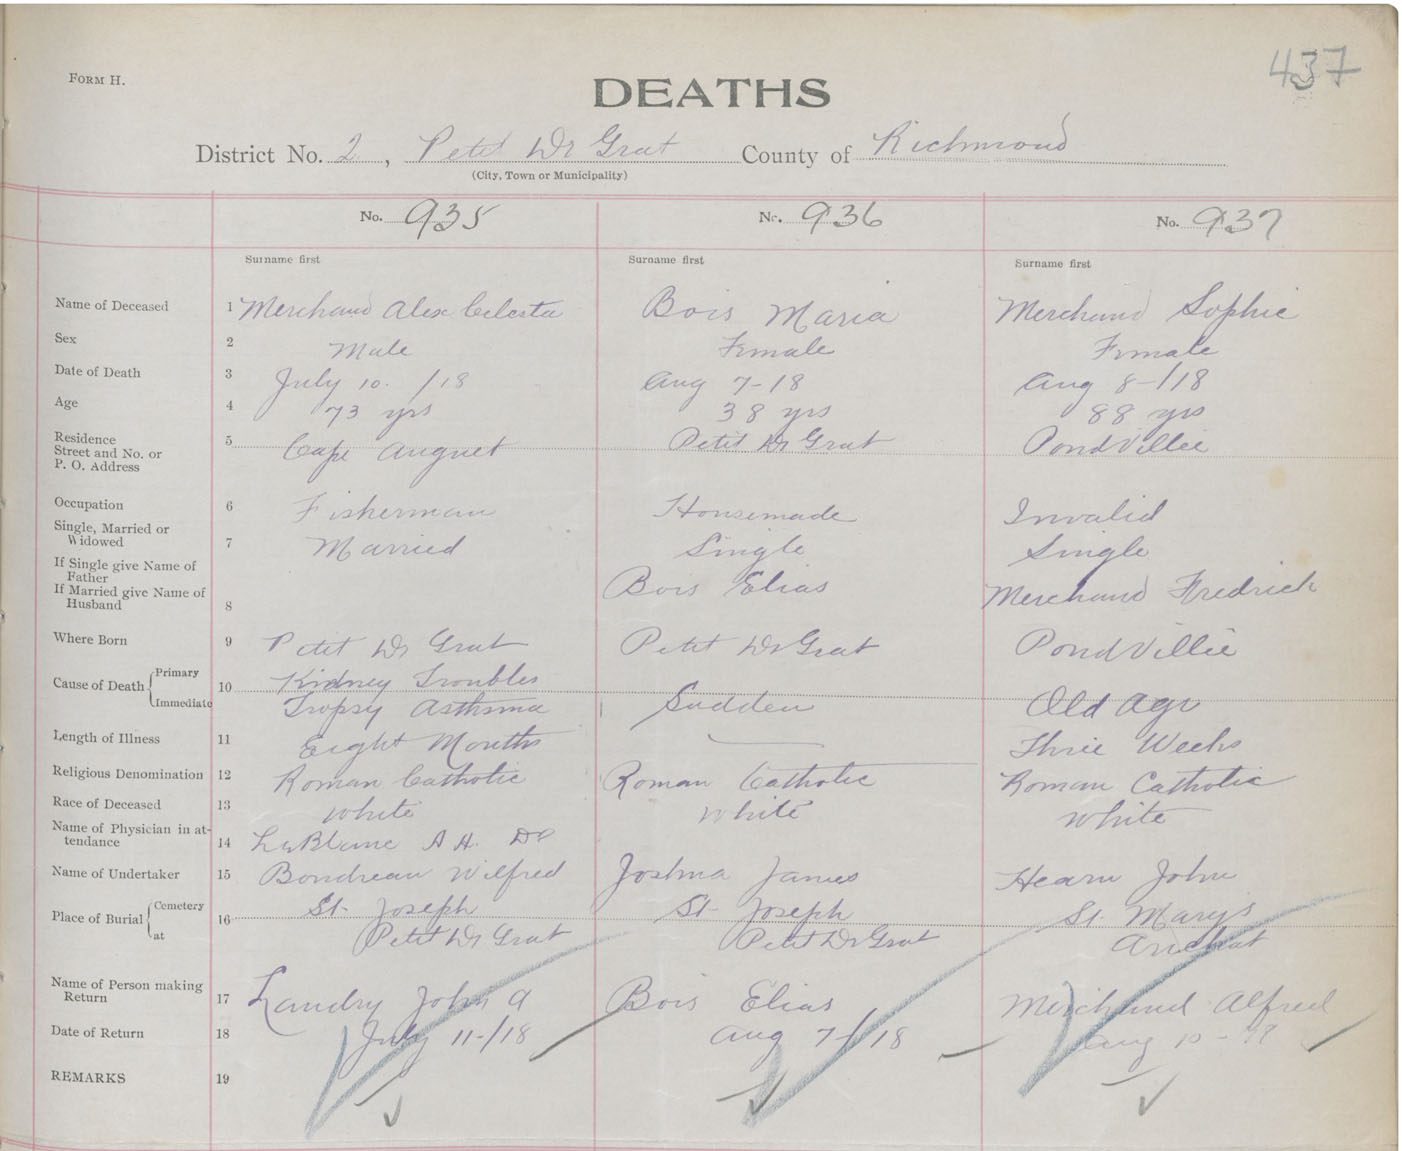 437
FORM H.
DEATHS
District No. 2, Petit De Grat County of Richmond
(City, Town or Municipality)
No. 935 No. 936 No. 937
Surname first Surname first Surname first
Name of Deceased 1 Merchand Alex Celesta Bois Maria Merchand Sophie
Sex 2 Male Female Female
Date of Death 3 July 10. /18 Aug 7-18 Aug 8-/18
Age 4 73 yrs 38 yrs 88 yrs
Residence
Street and No. or
P. O. Address 5 Cape Auguet Petit De Grat PondVillie
Occupation 6 Fisherman Housemade Invalid
Single, Married or
Widowed 7 Married Single Single
If Single give Name of
Father
If Married give Name of
Husband 8 Bois Elias Merchand Fredrick
Where Born 9 Petit De Grat Petit De Grat PondVillie
Cause of Death Primary Kidney Troubles
Immediate 10 Dropsy Asthsma Sudden Old Age
Length of Illness 11 Eight Months Three Weeks
Religious Denomination 12 Roman Catholic Roman Catholic Roman Catholic
Race of Deceased 13 White White White
Name of Physician in at-
tendance 14 LeBlanc A H. Dr
Name of Undertaker 15 Boudreau Wilfred Joshua James Hearn John
Place of Burial Cemetery 16 St. Joseph St Joseph St Marys
at Petit De Grat Petit De Grat Arichat
Name of Person making
Return 17 Landry John A Bois Elias Merchand Alfred
Date of Return 18 July 11-/18 Aug 7-/18 Aug 10-
REMARKS 19